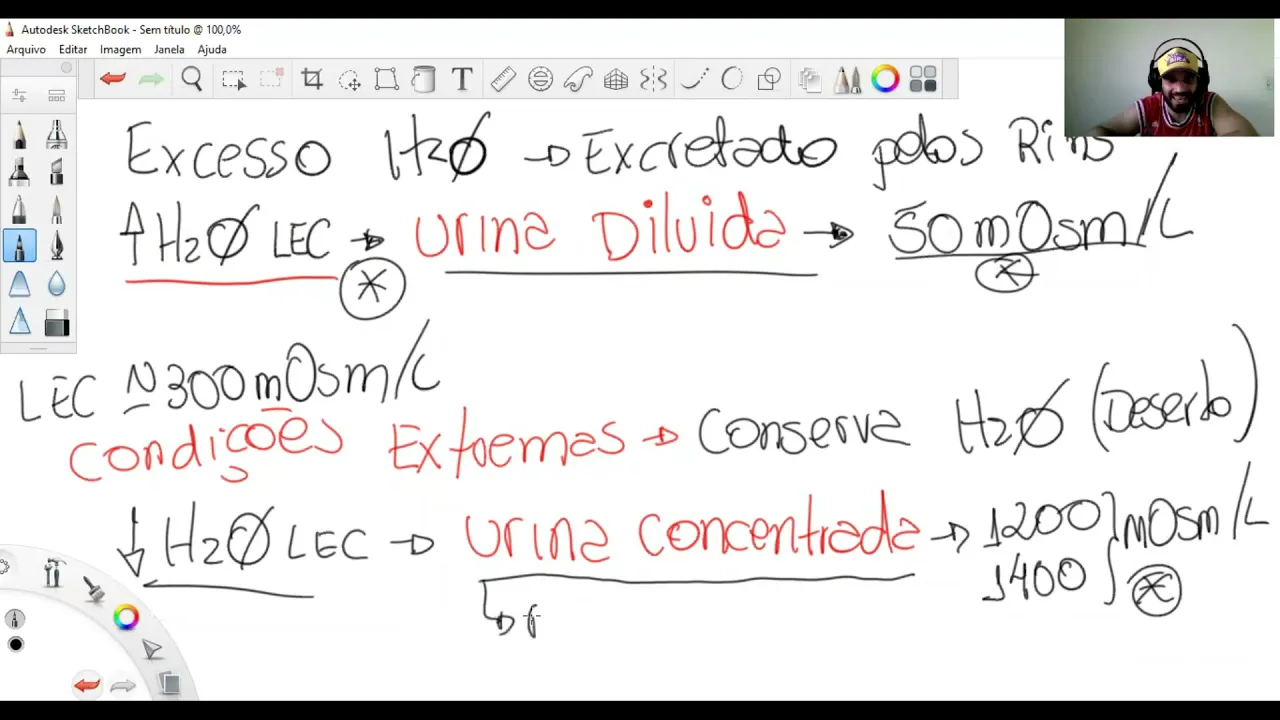 Autodesk SketchBook - Sem título @ 100,0%
Arquivo Editar Imagem Janela Ajuda
Excesso H2O → Excretado pelos Rins
↑ H2O LEC → Urina Diluída → 50 mOsm/L
LEC N 300 mOsm/L
Condições Extremas → Conserva H2O (Deserto)
↓ H2O LEC → Urina Concentrada → 1200 } mOsm/L
1400